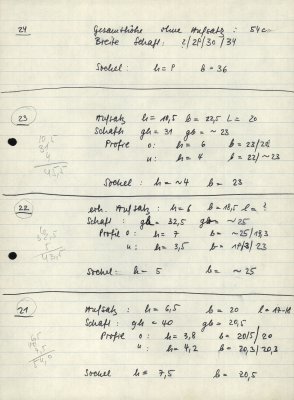 24 Gesamthöhe ohne Aufsatz : 54 c
Breite Schaft: 2/28/30/34
Sockel: h = ? b = 36
23 Aufsatz h = 10,5 b = 22,5 l = 20
Schaft gh = 31 gb = ~ 23
Profile o: h = 6 b = 23/22
u: h = 4 b = 22/~23
10,5
31
4
45,5
Sockel: h = ~4 b = 23
22 erh. Aufsatz: h = 6 b = 18,5 l = ?
Schaft: gh = 32,5 gb = ~25
Profile o: h = 7 b = ~25/18,3
u: h = 3,5 b = 23
6
32,5
5
43,5
Sockel: h = 5 b = ~25
21 Aufsatz: h = 6,5 b = 20
Schaft: gh = 40 gb = 20,5
Profile o: h = 3,8 b = 20/5/20
u: h = 4,2 b = 20,3/20,3
6,5
7,5
54,0
Sockel h = 7,5 b = 20,5